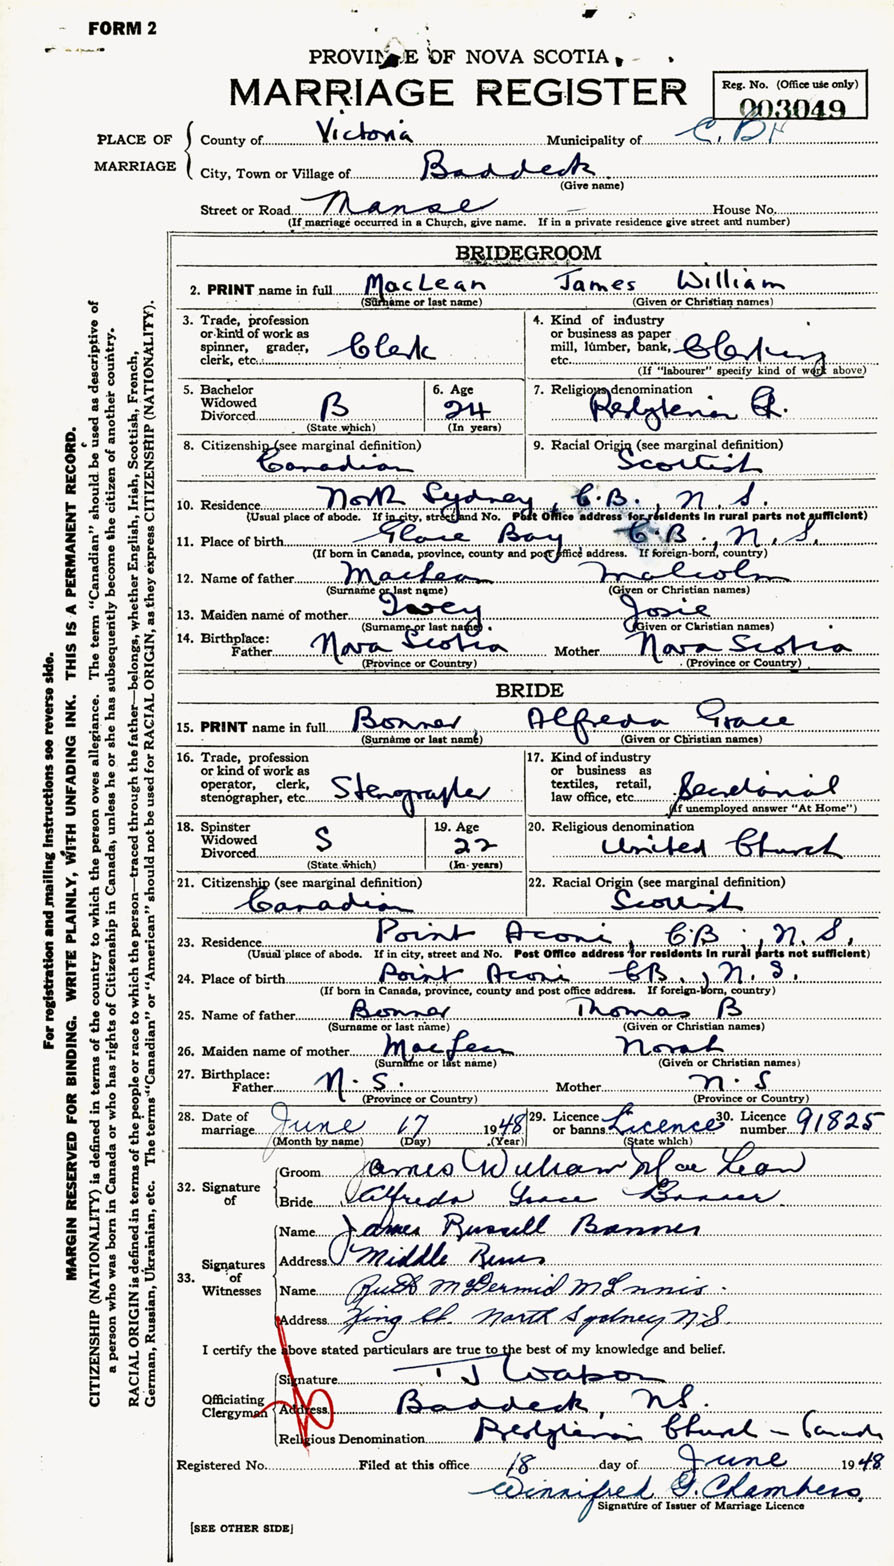 FORM 2
PROVINCE OF NOVA SCOTIA
MARRIAGE REGISTER
Reg. No. (Office use only)
003049
PLACE OF MARRIAGE
County of Victoria Municipality of C. B.
City, Town or Village of Baddeck
(Give name)
Street or Road Manse House No.
(If marriage occurred in a Church, give name. If in a private residence give street and number)
BRIDEGROOM
2. PRINT name in full MacLean James William
(Surname or last name) (Given or Christian names)
3. Trade, profession or kind of work as spinner, grader, clerk, etc. Clerk
4. Kind of industry or business as paper mill, lumber, bank, etc. Clerking
(If "labourer" specify kind of work above)
5. Bachelor Widowed Divorced B
(State which)
6. Age 24
(In years)
7. Religious denomination Presbyterian Ch.
8. Citizenship (see marginal definition) Canadian
9. Racial Origin (see marginal definition) Scottish
10. Residence North Sydney, C.B., N.S.
(Usual place of abode. If in city, street and No. Post Office address for residents in rural parts not sufficient)
11. Place of birth Glace Bay C.B., N.S.
(If born in Canada, province, county and post office address. If foreign-born, country)
12. Name of father MacLean Malcolm
(Surname or last name) (Given or Christian names)
13. Maiden name of mother Ivey Josie
(Surname or last name) (Given or Christian names)
14. Birthplace: Father Nova Scotia Mother Nova Scotia
(Province or Country) (Province or Country)
BRIDE
15. PRINT name in full Bonner Alfreda Grace
(Surname or last name) (Given or Christian names)
16. Trade, profession or kind of work as operator, clerk, stenographer, etc. Stenographer
17. Kind of industry or business as textiles, retail, law office, etc. Secretarial
(If unemployed answer "At Home")
18. Spinster Widowed Divorced S
(State which)
19. Age 22
(In years)
20. Religious denomination United Church
21. Citizenship (see marginal definition) Canadian
22. Racial Origin (see marginal definition) Scottish
23. Residence Point Aconi, C.B., N.S.
(Usual place of abode. If in city, street and No. Post Office address for residents in rural parts not sufficient)
24. Place of birth Point Aconi CB., N.S.
(If born in Canada, province, county and post office address. If foreign-born, country)
25. Name of father Bonner Thomas B
(Surname or last name) (Given or Christian names)
26. Maiden name of mother MacLean Norah
(Surname or last name) (Given or Christian names)
27. Birthplace: Father N.S. Mother N.S
(Province or Country) (Province or Country)
28. Date of marriage June 17 1948 29. Licence or banns Licence 30. Licence number 91825
(Month by name) (Day) (Year) (State which)
32. Signature of
Groom James William MacLean
Bride Alfreda Grace Bonner
33. Signatures of Witnesses
Name James Russell Bonner
Address Middle River
Name Ruth McDermid McInnis.
Address King St. North Sydney N.S.
I certify the above stated particulars are true to the best of my knowledge and belief.
Officiating Clergyman
Signature T J Watson
Address Baddeck, NS.
Religious Denomination Presbyterian Church - Canada
Registered No. Filed at this office 18 day of June 1948
Winnifred G. Chambers.
Signature of Issuer of Marriage Licence
[SEE OTHER SIDE]
For registration and mailing instructions see reverse side.
MARGIN RESERVED FOR BINDING. WRITE PLAINLY, WITH UNFADING INK. THIS IS A PERMANENT RECORD.
CITIZENSHIP (NATIONALITY) is defined in terms of the country to which the person owes allegiance. The term "Canadian" should be used as descriptive of
a person who was born in Canada or who has rights of Citizenship in Canada, unless he or she has subsequently become the citizen of another country.
RACIAL ORIGIN is defined in terms of the people or race to which the person—traced through the father—belongs, whether English, Irish, Scottish, French,
German, Russian, Ukrainian, etc. The terms "Canadian" or "American" should not be used for RACIAL ORIGIN, as they express CITIZENSHIP (NATIONALITY).